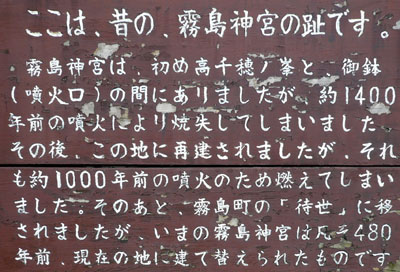 ここは、昔の、霧島神宮の趾です。
霧島神宮は、初め高千穂ノ峯と、御鉢
(噴火口)の間にありましたが、約1400
年前の噴火により焼失してしまいました
その後、この地に再建されましたが、それ
も約1000年前の噴火のため燃えてしまい
ました。そのあと、霧島町の「待世」に移
されましたが、いまの霧島神宮は凡そ480
年前、現在の地に建て替えられたものです